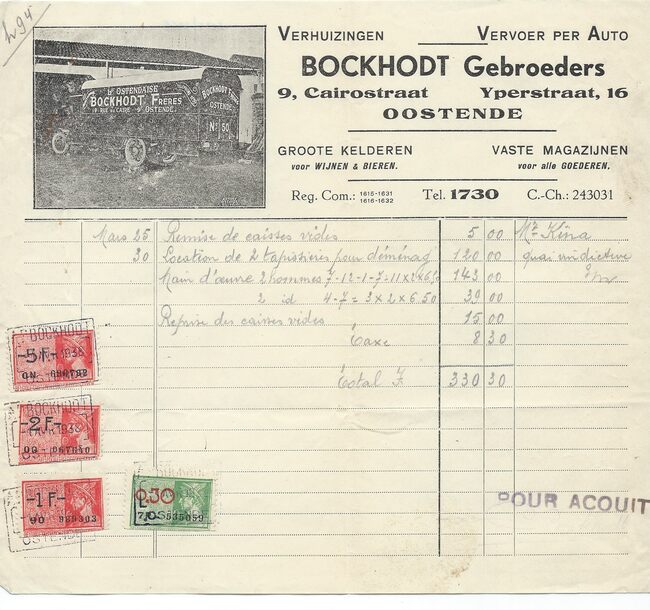 h94
VERHUIZINGEN VERVOER PER AUTO
BOCKHODT Gebroeders
9, Cairostraat Yperstraat, 16
OOSTENDE
GROOTE KELDEREN VASTE MAGAZIJNEN
voor WIJNEN & BIEREN. voor alle GOEDEREN.
Reg. Com.: 1615-1631 1616-1632 Tel. 1730 C.-Ch.: 243031
L'OSTENDAISE
BOCKHODT FRÈRES
19 RUE DU CAIRE 9 OSTENDE
BOCKHODT
OSTENDE
No 50
Mars 25 Remise de caisses vides 5 00 Mr Kina
30 Location de 2 tapissières pour déménag 120 00 quai
Main d'œuvre 2 hommes 7-12-1-7=11×2×6,50 143 00
2 id 4-7=3×2×6.50 39 00
Reprise des caisses vides 15 00
Taxe 8 30
Total F 330 30
BOCKHODT
-5F-
1938
OSTENDE
BOCKHODT
-2F-
1938
-1F-
90 985303
OSTENDE
0,30
535059
POUR ACQUIT